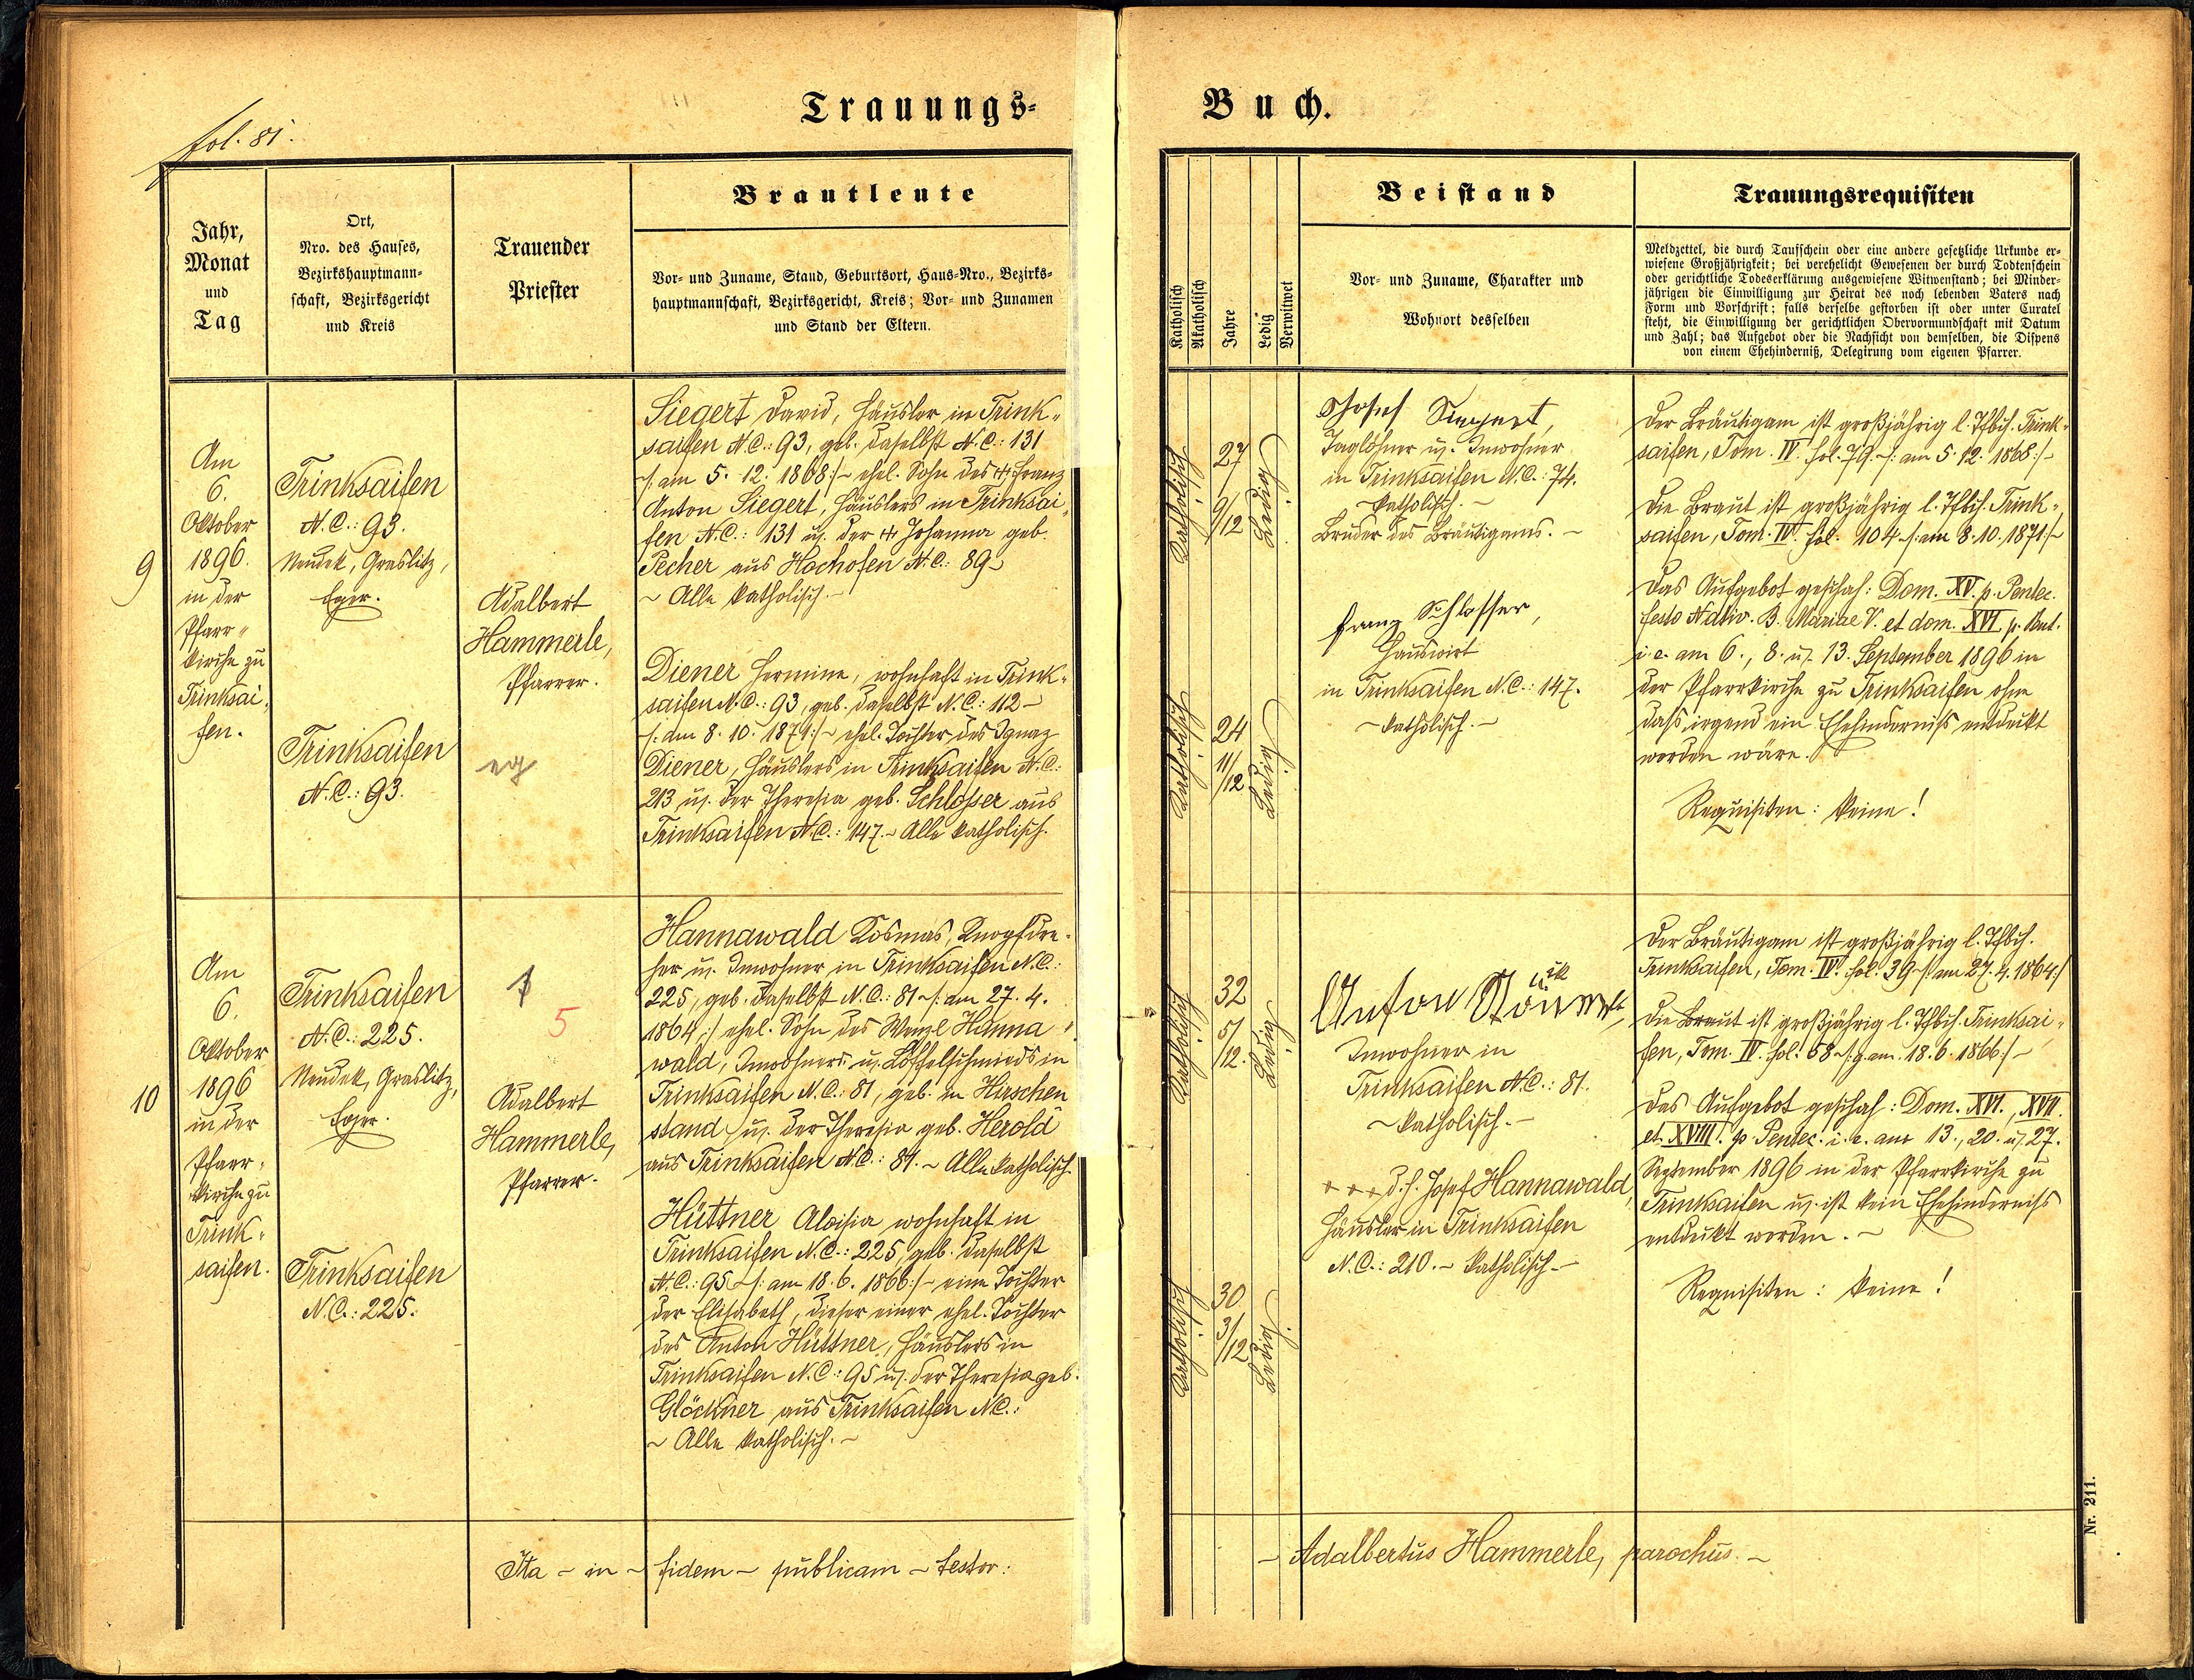 fol. 81.
Trauungs-
Jahr,
Monat
und
Tag
Ort,
Nro. des Hauses,
Bezirkshauptmann-
schaft, Bezirksgericht
und Kreis
Trauender
Priester
Brautleute
Vor- und Zuname, Stand, Geburtsort, Haus-Nro., Bezirks-
hauptmannschaft, Bezirksgericht, Kreis; Vor- und Zunamen
und Stand der Eltern.
9
Am
6.
Oktober
1896.
in der
Pfarr-
kirche zu
Trinksai-
fen.
Trinksaifen
N.C.: 93.
Neudek, Graslitz,
Eger.
Trinksaifen
N.C.: 93.
Adalbert
Hammerle,
Pfarrer.
eg
Siegert David, Häusler in Trink-
saifen N.C.: 93, geb. daselbst N.C.: 131
/: am 5. 12. 1868 :/ ehel. Sohn des † Franz
Anton Siegert, Häuslers in Trinksai-
fen N.C.: 131 u. der † Johanna geb.
Pecher aus Hochofen N.C.: 89 –
~ Alle katholisch. –
Diener Hermine, wohnhaft in Trink-
saifen N.C.: 93, geb. daselbst N.C.: 112 –
/: am 8. 10. 1871 :/ ehel. Tochter des Ignaz
Diener, Häuslers in Trinksaifen N.C.:
213 u. der Theresia geb. Schlosser aus
Trinksaifen N.C.: 147. – Alle katholisch.
10
Am
6.
Oktober
1896
in der
Pfarr-
kirche zu
Trink-
saifen.
Trinksaifen
N.C.: 225.
Neudek, Graslitz,
Eger.
Trinksaifen
N.C.: 225.
5
Adalbert
Hammerle,
Pfarrer.
Hannawald Kosmas, Knopfdre-
her u. Inwohner in Trinksaifen N.C.:
225, geb. daselbst N.C.: 81 /: am 27. 4.
1864 :/ ehel. Sohn des Wenzl Hanna-
wald, Inwohners u. Löffelschmieds in
Trinksaifen N.C.: 81, geb. in Hirschen
stand u. der Theresia geb. Herold
aus Trinksaifen N.C.: 81. ~ Alle katholisch.
Hüttner Aloisia wohnhaft in
Trinksaifen N.C.: 225, geb. daselbst
N.C.: 95 /: am 18. 6. 1866 :/ – eine Tochter
der Elisabeth, dieser einer ehel. Tochter
des Anton Hüttner, Häuslers in
Trinksaifen N.C.: 95 u. der Theresia geb.
Glöckner aus Trinksaifen N.C.:
~ Alle katholisch. ~
Ita – in – fidem – publicam – testor:
Buch.
Katholisch
Akatholisch
Jahre
Ledig
Verwitwet
Beistand
Vor- und Zuname, Charakter und
Wohnort desselben
Trauungsrequisiten
Meldzettel, die durch Taufschein oder eine andere gesetzliche Urkunde er-
wiesene Großjährigkeit; bei verehelicht Gewesenen der durch Todtenschein
oder gerichtliche Todeserklärung ausgewiesene Witwenstand; bei Minder-
jährigen die Einwilligung zur Heirat des noch lebenden Vaters nach
Form und Vorschrift; falls derselbe gestorben ist oder unter Curatel
steht, die Einwilligung der gerichtlichen Obervormundschaft mit Datum
und Zahl; das Aufgebot oder die Nachsicht von demselben, die Dispens
von einem Ehehinderniß, Delegirung vom eigenen Pfarrer.
Katholisch
27
9/12
Ledig
Katholisch
24
11/12
Ledig
Josef Siegert,
Taglöhner u. Inwohner
in Trinksaifen N.C.: 74.
– katholisch. –
Bruder des Bräutigams. –
Franz Schlosser,
Hauswirt
in Trinksaifen N.C.: 147.
– katholisch. –
Der Bräutigam ist großjährig l. Tfbch. Trink-
saifen, Tom. IV. fol. 79. /: am 5. 12. 1868 :/ –
Die Braut ist großjährig l. Tfbch. Trink-
saifen, Tom. IV. fol. 104 /: am 8. 10. 1871 :/
Das Aufgebot geschah: Dom. XV. p. Pentec.
festo Nativ. B. Mariae V. et dom. XVI. p. Pent.
i. e. am 6., 8. u. 13. September 1896 in
der Pfarrkirche zu Trinksaifen ohne
dass irgend ein Ehehinderniss entdeckt
worden wäre.
Requisiten: keine!
Katholisch
32
5/12.
Ledig
Katholisch
30
3/12
Ledig
Anton
Inwohner in
Trinksaifen N.C.: 81.
~ katholisch. –
+ + + d. h. Josef Hannawald,
Häusler in Trinksaifen
N.C.: 210. – katholisch –
Der Bräutigam ist großjährig l. Tfbch.
Trinksaifen, Tom. IV. fol. 39 /: am 27. 4. 1864 :/
Die Braut ist großjährig l. Tfbch. Trinksai-
fen, Tom. IV. fol. 68 /: g. am. 18. 6. 1866 :/ –
Das Aufgebot geschah: Dom. XVI., XVII.
et XVIII. p. Pentec. i. e. am 13., 20. u. 27.
September 1896 in der Pfarrkirche zu
Trinksaifen u. ist kein Ehehinderniss
entdeckt worden. –
Requisiten: keine!
– Adalbertus Hammerle, parochus. ~
Nr. 211.